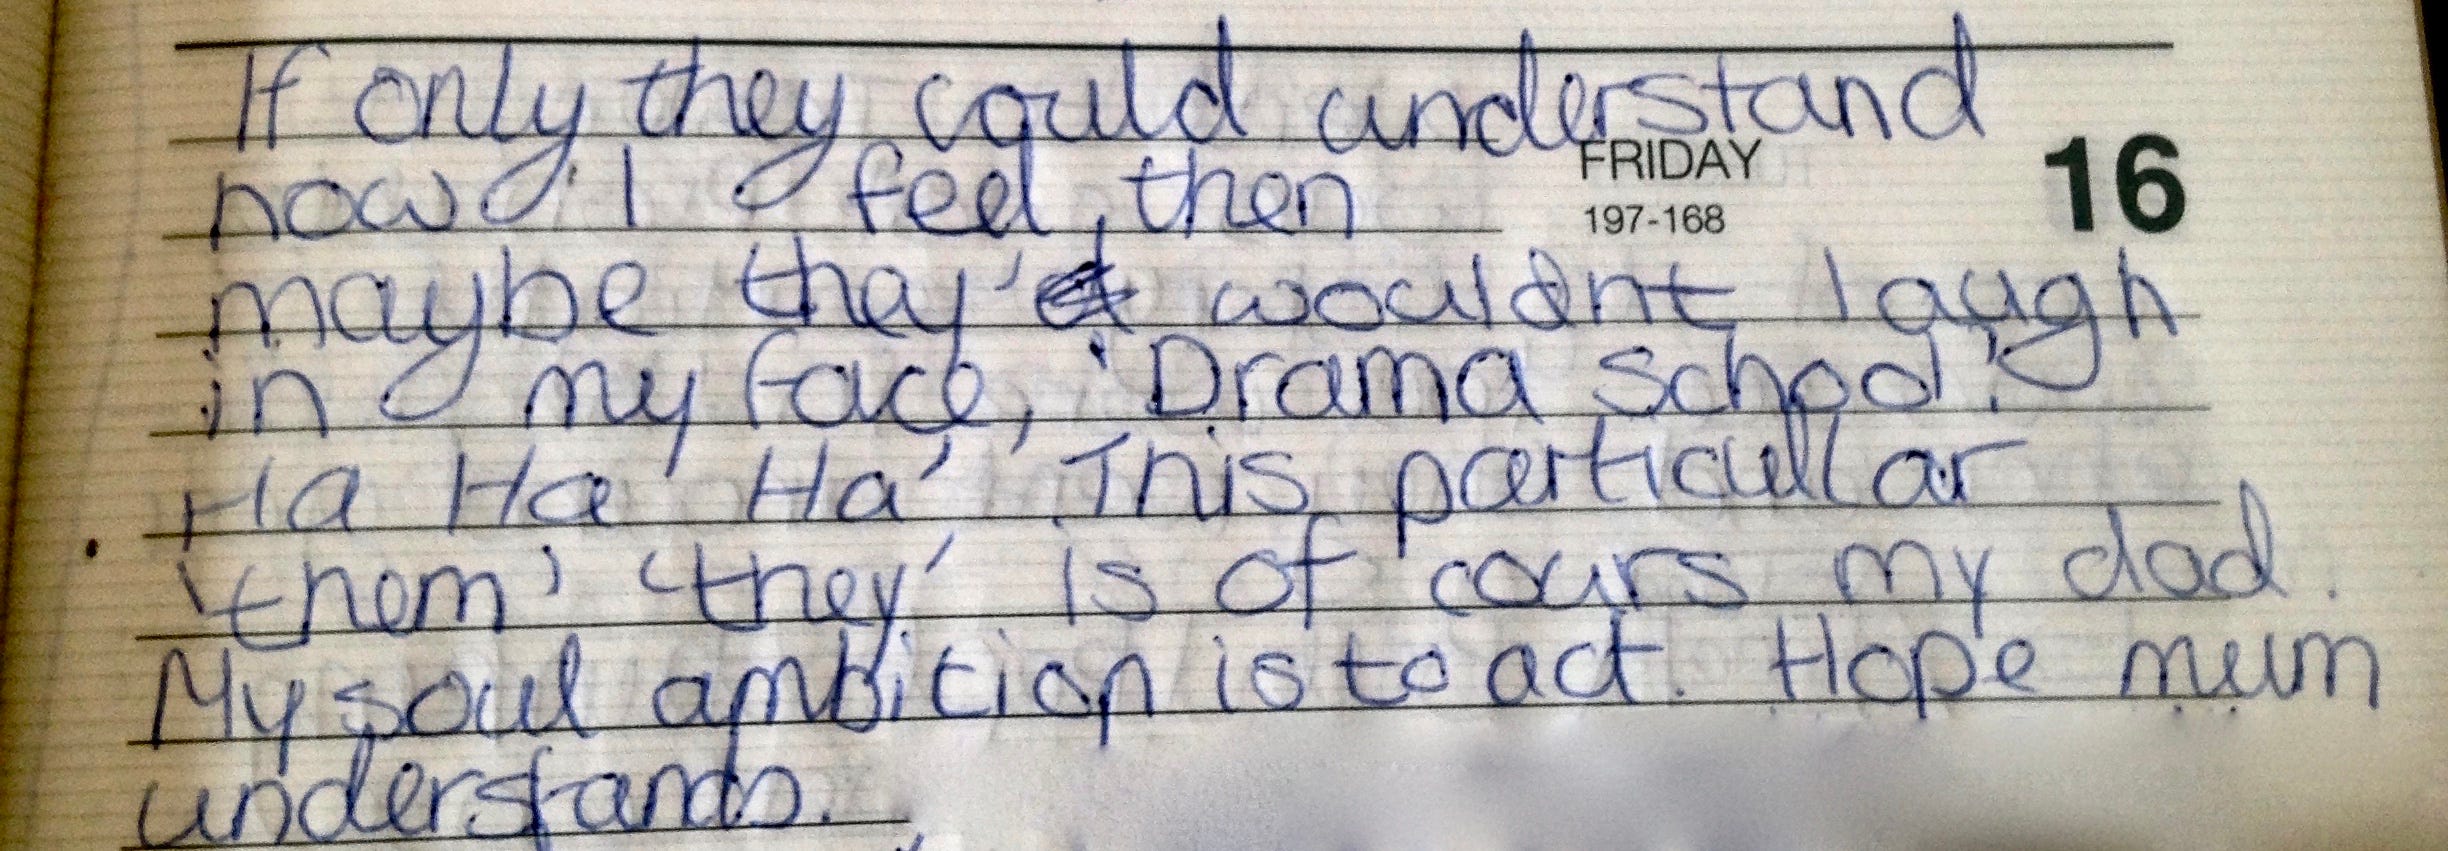 If only they could understand
how I feel, then
FRIDAY 16
197-168
maybe they' wouldnt laugh
in my face, 'Drama School!
Ha Ha Ha' This particullar
'them' 'they' is of cours my dad.
My soul ambition is to act. Hope mum
understands.